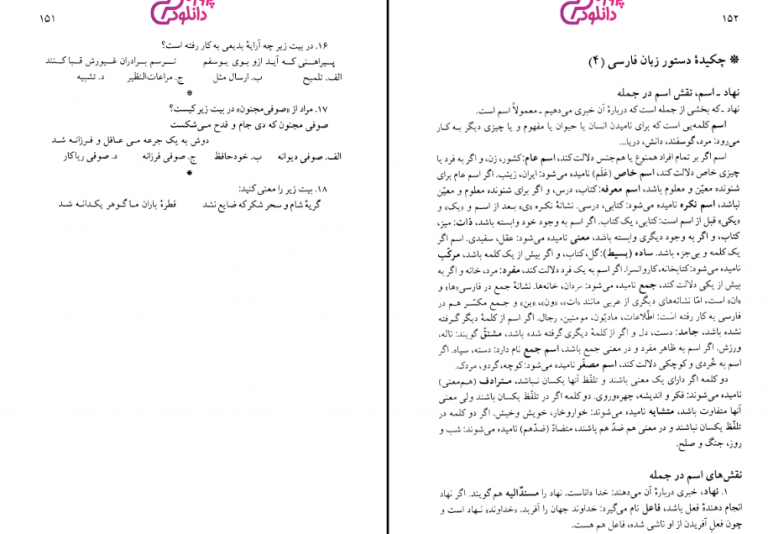 ۱۵۱
دانلود
۱۶. در بیت زیر چه آرایهٔ بدیعی به کار رفته است؟
پیراهنی که آید ازو بوی یوسفم ترسم برادران غیورش قبا کنند
الف. تلمیح ب. ارسال مثل ج. مراعات‌النظیر د. تشبیه
*
۱۷. مراد از «صوفی مجنون» در بیت زیر کیست؟
صوفی مجنون که دی جام و قدح می‌شکست
دوش به یک جرعه می عاقل و فرزانه شد
الف. صوفی دیوانه ب. خود حافظ ج. صوفی فرزانه د. صوفی ریاکار
*
۱۸. بیت زیر را معنی کنید:
گریهٔ شام و سحر شکر که ضایع نشد قطرهٔ باران ما گوهر یکدانه شد
۱۵۲
دانلود
* چکیدهٔ دستور زبان فارسی (۴)
نهاد ـ اسم، نقش اسم در جمله
نهاد ـ که بخشی از جمله است که دربارهٔ آن خبری می‌دهیم ـ معمولاً اسم است.
اسم کلمه‌یی است که برای نامیدن انسان یا حیوان یا مفهوم و یا چیزی دیگر به کار
می‌رود: مرد، گوسفند، دانش، دریا...
اسم اگر بر تمام افراد همنوع یا هم‌جنس دلالت کند، اسم عام: کشور، زن، و اگر به فرد یا
چیزی خاص دلالت کند، اسم خاص (عَلَم) نامیده می‌شود: ایران، زینب. اگر اسم عام برای
شنونده معیّن و معلوم باشد، اسم معرفه: کتاب، درس، و اگر برای شنونده معلوم و معیّن
نباشد، اسم نکره نامیده می‌شود: کتابی، درسی. نشانهٔ نکره «ی» بعد از اسم و «یک» و
«یکی» قبل از اسم است: کتابی، یک کتاب. اگر اسم به وجود خود وابسته باشد، ذات: میز،
کتاب، و اگر به وجود دیگری وابسته باشد، معنی نامیده می‌شود: عقل، سفیدی. اسم اگر
یک کلمه و بی‌جزء باشد. ساده (بسیط): گل، کتاب، و اگر بیش از یک کلمه باشد، مرکّب
نامیده می‌شود: کتابخانه، کاروانسرا. اگر اسم به یک فرد دلالت کند، مفرد: مرد، خانه و اگر به
بیش از یکی دلالت کند، جمع نامیده می‌شود: مردان، خانه‌ها. نشانهٔ جمع در فارسی «ها» و
«ان» است، امّا نشانه‌های دیگری از عربی مانند «ات»، «ون»، «ین» و جمع مکسّر هم در
فارسی به کار رفته است: اطّلاعات، مادیّون، مومنین، رجال. اگر اسم از کلمهٔ دیگر گرفته
نشده باشد، جامد: دست، دل و اگر از کلمهٔ دیگری گرفته شده باشد، مشتقّ گویند: ناله،
ورزش. اگر اسم به ظاهر مفرد و در معنی جمع باشد، اسم جمع نام دارد: دسته، سپاه. اگر
اسم به خُردی و کوچکی دلالت کند، اسم مصغّر نامیده می‌شود: کوچه، گردو، مردک.
دو کلمه اگر دارای یک معنی باشند و تلفّظ آنها یکسان نباشد، مترادف (هم‌معنی)
نامیده می‌شوند: فکر و اندیشه، چهره و روی. دو کلمه اگر در تلفّظ یکسان باشند ولی معنی
آنها متفاوت باشد، متشابه نامیده می‌شوند: خوار و خار، خویش و خیش. اگر دو کلمه در
تلفّظ یکسان نباشند و در معنی هم ضدّ هم باشند، متضادّ (ضدّهم) نامیده می‌شوند: شب و
روز، جنگ و صلح.
نقش‌های اسم در جمله
۱. نهاد، خبری دربارهٔ آن می‌دهند: خدا داناست. نهاد را مسندٌالیه هم گویند. اگر نهاد
انجام دهندهٔ فعل باشد، فاعل نام می‌گیرد: خداوند جهان را آفرید. «خداوند» نهاد است و
چون فعلِ آفریدن از او ناشی شده، فاعل هم هست.